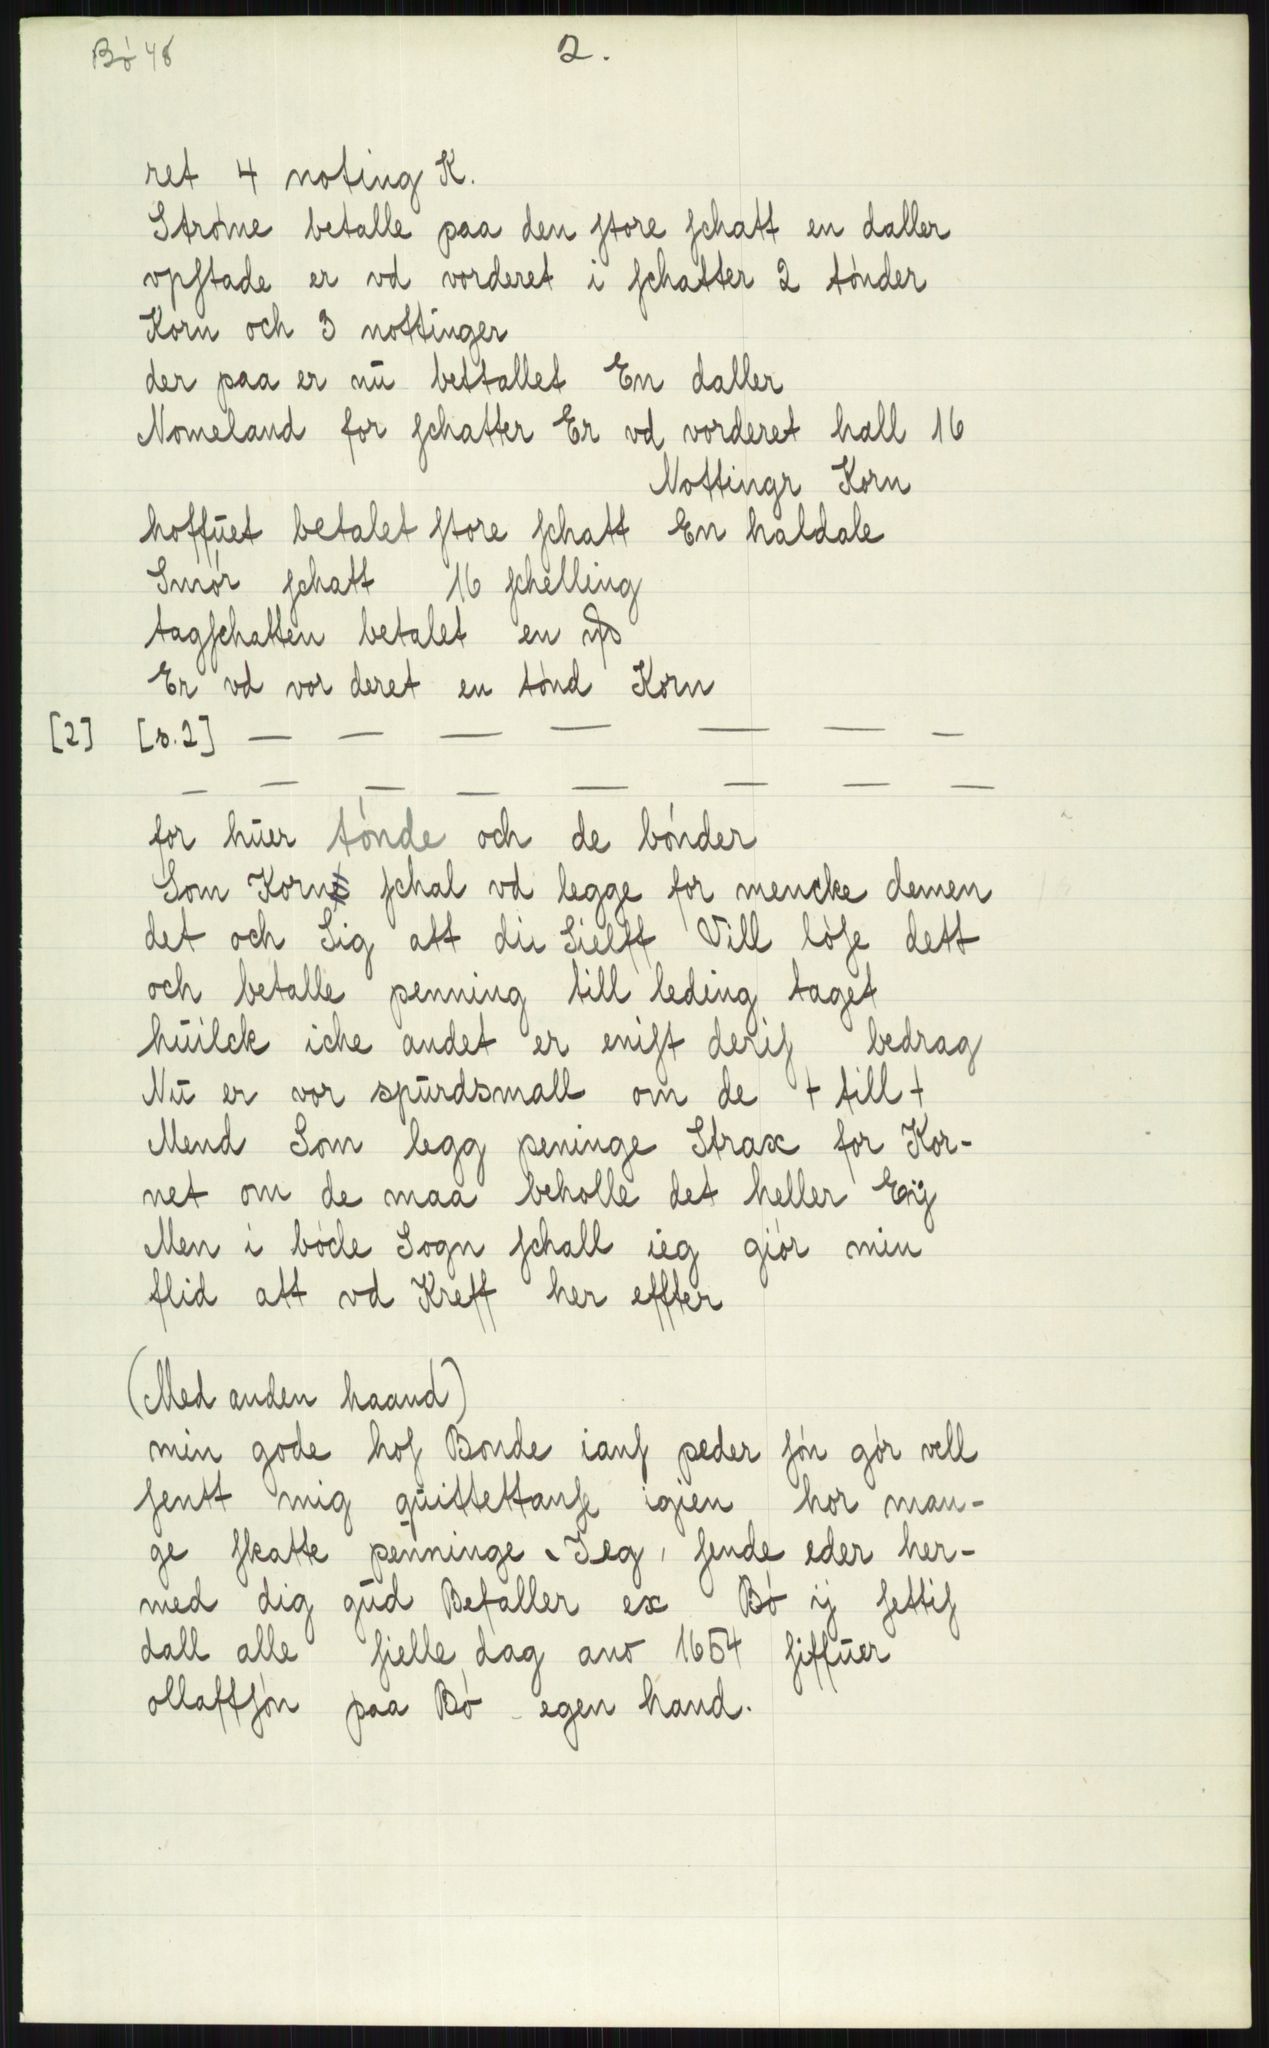 Bó 48
2.
ret 4 noting K.
Stróme betalle paa den ſtore ſchatt en daller
vpſtade er vd vorderet i ſchatter 2 tónder
Korn och 3 nottinger
der paa er nū bettallet En daller
Nomeland for ſchatter Er vd vorderet hall 16
Nottingr Korn
hoffūet betalet ſtore ſchatt En haldale
Smór ſchatt 16 ſchelling
tagſchatten betalet en
Er vd vor deret en tónd Korn
[2] [s.2] — — — — — — —
— — — — — — — —
for hūer tónde och de bónder
Som Korn ſchal vd legge for mencke demen
det och Sig att die Sielff Vill lóſe dett
och betalle penning till leding taget
hūilck iche andet er eniſt deriſ bedrag
Nū er vor spūrdsmall om de + till +
Mend Som legg peninge Strax for Kor-
net om de maa beholle det heller Eÿ
Men i bóde Sogn ſchall ieg giór min
flid att vd Kreff her effter
(Med anden haand)
min gode hoſ Bonde ianſ peder ſón gór vell
ſentt mig qūittettanſe igien hor man-
ge ſkatte penninge. Jeg, ſende eder her-
med dig gūd Befaller ex Bó ij ſettiſ
dall alle ſielle dag ano 1654 ſiffūer
ollaffſón paa Bó egen hand.